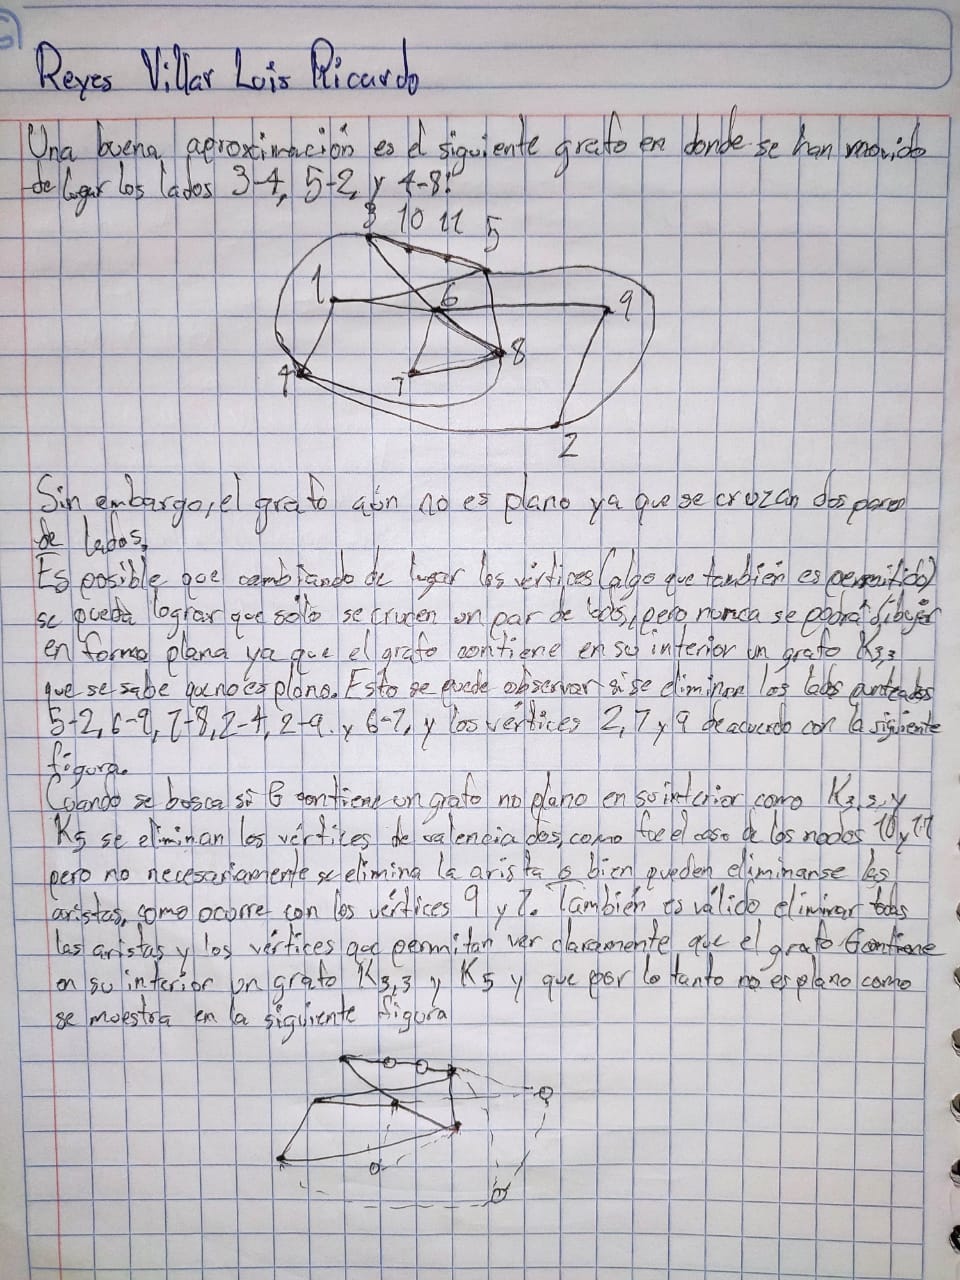 Reyes Villar Luis Ricardo
Una buena aproximación es el siguiente grafo en donde se han movido
de lugar los lados 3-4, 5-2, y 4-8:
3 10 11 5
1 6 9
4 7 8
2
Sin embargo, el grafo aún no es plano ya que se cruzan dos pares
de lados.
Es posible que cambiando de lugar los vértices (algo que también es permitido)
se pueda lograr que sólo se crucen un par de lados, pero nunca se podrá dibujar
en forma plana ya que el grafo contiene en su interior un grafo K3,3
que se sabe que no es plano. Esto se puede observar si se eliminan los lados
5-2, 6-9, 7-8, 2-4, 2-9. y 6-7, y los vértices 2, 7 y 9 de acuerdo con la siguiente
figura.
Cuando se busca si G contiene un grafo no plano en su interior como K3,3, y
K5 se eliminan los vértices de valencia dos, como fue el caso de los nodos 10 y 11
pero no necesariamente se elimina la arista o bien pueden eliminarse las
aristas, como ocurre con los vértices 9 y 7. También es válido eliminar todas
las aristas y los vértices que permitan ver claramente que el grafo G contiene
en su interior un grafo K3,3 y K5 y que por lo tanto no es plano como
se muestra en la siguiente figura